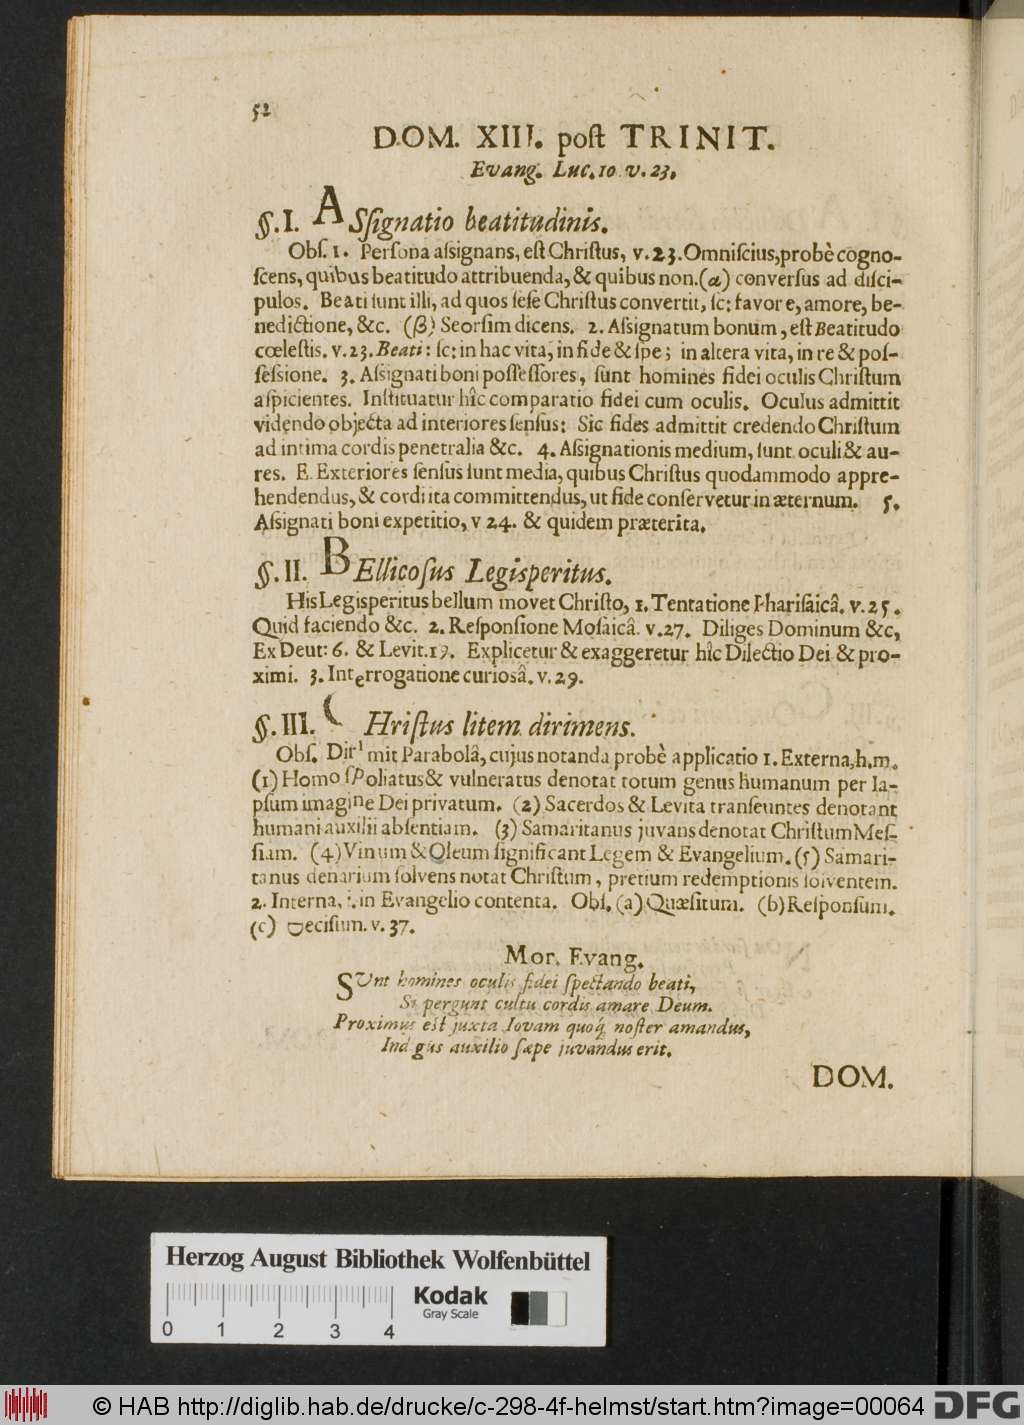 52
DOM. XIII. poſt TRINIT.
Evang. Luc. 10 v. 23.
§. I. ASſignatio beatitudinis.
Obſ. 1. Perſona aſsignans, eſt Chriſtus, v. 23. Omniſcius, probè cogno-
ſcens, quibus beatitudo attribuenda, & quibus non. (α) converſus ad diſci-
pulos. Beati ſunt illi, ad quos ſeſe Chriſtus convertit, ſc: favore, amore, be-
nedictione, &c. (β) Seorſim dicens. 2. Aſsignatum bonum, eſt Beatitudo
cœleſtis. v. 23. Beati: ſc: in hac vita, in fide & ſpe; in altera vita, in re & poſ-
ſeſsione. 3. Aſsignati boni poſſeſſores, ſunt homines fidei oculis Chriſtum
aſpicientes. Inſtituatur hîc comparatio fidei cum oculis. Oculus admittit
videndo objecta ad interiores ſenſus: Sic fides admittit credendo Chriſtum
ad intima cordis penetralia &c. 4. Aſsignationis medium, ſunt oculi & au-
res. E. Exteriores ſenſus ſunt media, quibus Chriſtus quodammodo appre-
hendendus, & cordi ita committendus, ut fide conſervetur in æternum. 5.
Aſsignati boni expetitio, v 24. & quidem præterita.
§. II. BEllicoſus Legisperitus.
His Legisperitus bellum movet Chriſto, 1. Tentatione Phariſaicâ. v. 25.
Quid faciendo &c. 2. Reſponſione Moſaicâ. v. 27. Diliges Dominum &c,
Ex Deut: 6. & Levit. 19. Explicetur & exaggeretur hîc Dilectio Dei & pro-
ximi. 3. Interrogatione curiosâ. v. 29.
§. III. CHriſtus litem dirimens.
Obſ. Dirimit Parabolâ, cujus notanda probè applicatio 1. Externa, h. m.
(1) Homo ſpoliatus & vulneratus denotat totum genus humanum per la-
pſum imagine Dei privatum. (2) Sacerdos & Levita tranſeuntes denotant
humani auxilii abſentiam. (3) Samaritanus juvans denotat Chriſtum Meſ-
ſiam. (4) Vinum & Oleum ſignificant Legem & Evangelium. (5) Samari-
tanus denarium ſolvens notat Chriſtum, pretium redemptionis ſolventem.
2. Interna, :. in Evangelio contenta. Obſ. (a) Quæſitum. (b) Reſponſum.
(c) Deciſum. v. 37.
Mor. Evang.
SUnt homines oculis fidei ſpectando beati,
Si pergunt cultu cordis amare Deum.
Proximus eſt juxta Jovam quoq; noſter amandus,
Indigus auxilio ſæpe juvandus erit.
DOM.
Herzog August Bibliothek Wolfenbüttel
Kodak
Gray Scale
0 1 2 3 4
© HAB http://diglib.hab.de/drucke/c-298-4f-helmst/start.htm?image=00064
DFG